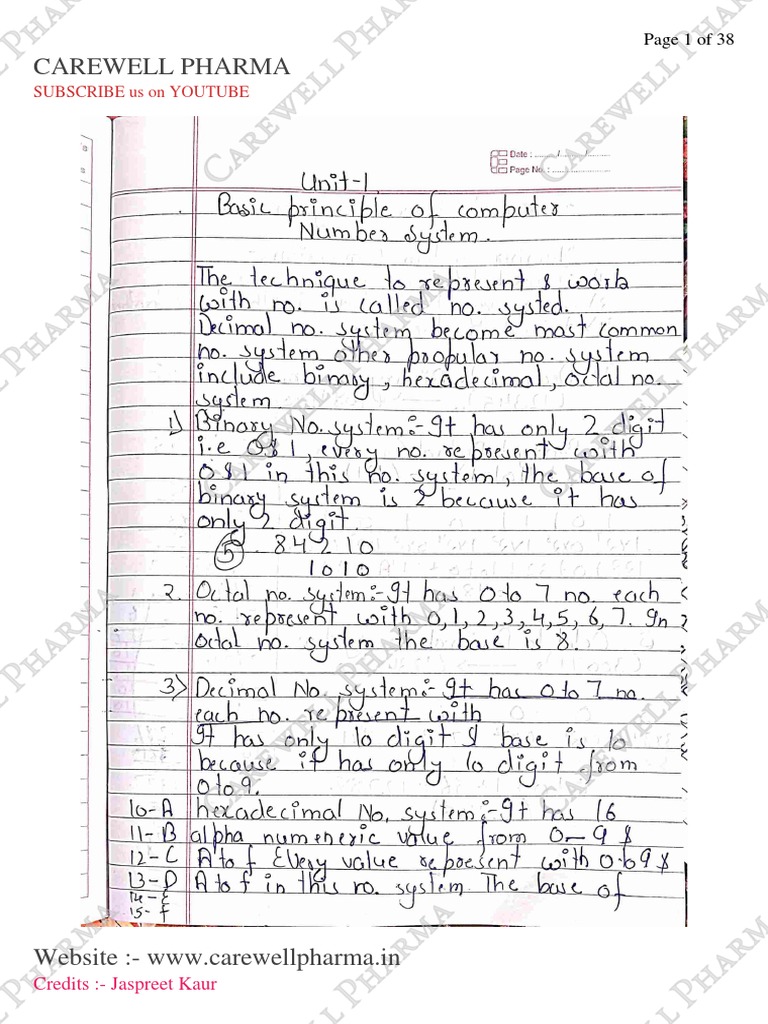 Page 1 of 38
CAREWELL PHARMA
SUBSCRIBE us on YOUTUBE
Date : ......../......../........
Page No. : ........................
Unit-1
Basic principle of computer
Number System.
The technique to represent & work
with no. is called no. systed.
Decimal no. system become most common
no. system other propular no. system
include binary, hexadecimal, octal no.
system
1) Binary No. system:- It has only 2 digit
i.e 0&1, every no. represent with
0&1 in this no. system, the base of
binary system is 2 because it has
only 2 digit.
5 . 8 4 2 1 0
1 0 1 0
2. Octal no. system:- It has 0 to 7 no. each
no. represent with 0,1,2,3,4,5,6,7. In
octal no. system the base is 8.
3) Decimal No. system:- It has 0 to 7 no.
each no. represent with
It has only 10 digit & base is 10
because it has only 10 digit from
0 to 9.
10-A hexadecimal No. system:- It has 16
11-B alpha numeneric value from 0-9 &
12-C A to f Every value represent with 0.69 &
13-D A to f in this no. system The base of
14-E
15-f
Website :- www.carewellpharma.in
Credits :- Jaspreet Kaur
CAREWELL PHARMA